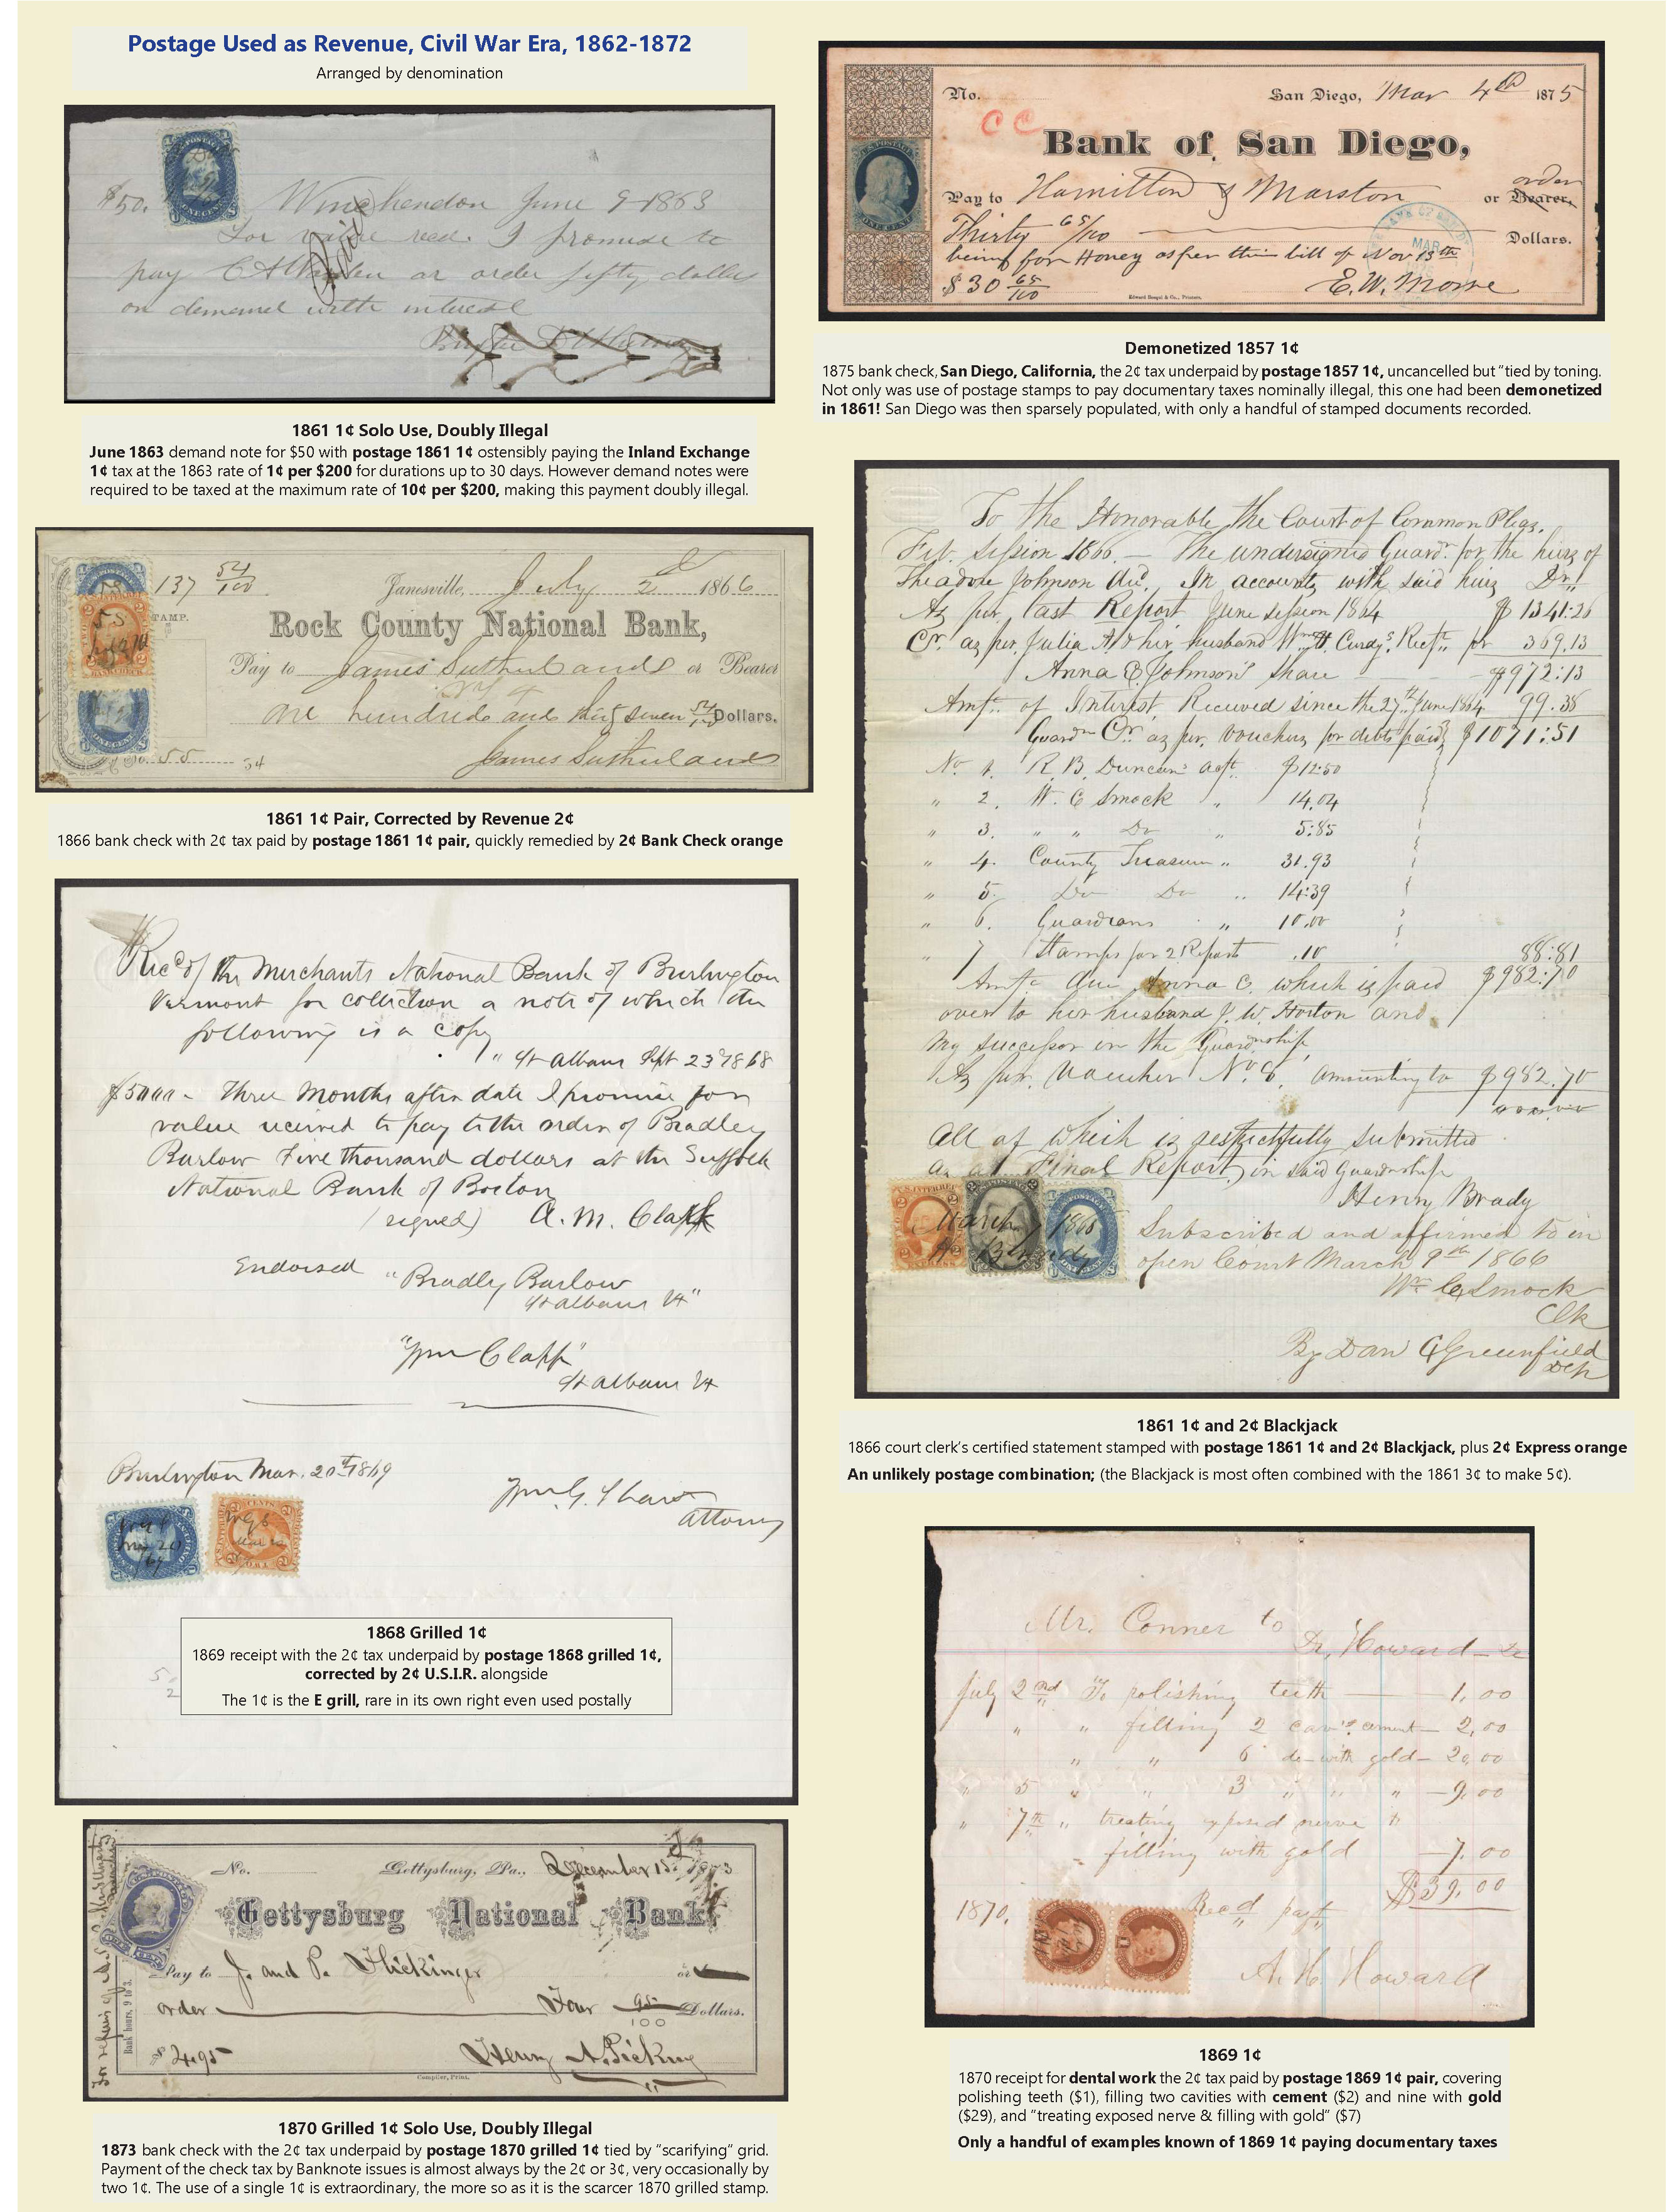 Postage Used as Revenue, Civil War Era, 1862-1872
Arranged by denomination
$50. Winchendon June 9 1863
For value recd. I promise to
pay or order fifty dollars
on demand with interest
Paid
1861 1¢ Solo Use, Doubly Illegal
June 1863 demand note for $50 with postage 1861 1¢ ostensibly paying the Inland Exchange
1¢ tax at the 1863 rate of 1¢ per $200 for durations up to 30 days. However demand notes were
required to be taxed at the maximum rate of 10¢ per $200, making this payment doubly illegal.
137 54/100 Janesville, July 2d 1866
STAMP.
Rock County National Bank,
Pay to James Sutherland or Bearer
One hundred and thirty seven 54/100 Dollars.
No. 55 James Sutherland
1861 1¢ Pair, Corrected by Revenue 2¢
1866 bank check with 2¢ tax paid by postage 1861 1¢ pair, quickly remedied by 2¢ Bank Check orange
Recd of the Merchants National Bank of Burlington
Vermont for collection a note of which the
following is a copy
" St Albans Sept 23 1868
$5000 - Three Months after date I promise for
value received to pay to the order of Bradley
Barlow Five thousand dollars at the Suffolk
National Bank of Boston
(signed) A. M. Clapp
Endorsed "Bradley Barlow
St Albans Vt"
"Wm Clapp"
St Albans Vt
Burlington Mar. 20th 1869
Wm G. Shaw
Attorney
1868 Grilled 1¢
1869 receipt with the 2¢ tax underpaid by postage 1868 grilled 1¢,
corrected by 2¢ U.S.I.R. alongside
The 1¢ is the E grill, rare in its own right even used postally
No. Gettysburg, Pa., December 15 1873
Gettysburg National Bank,
Pay to J. and P. Flickinger or
order Four 95/100 Dollars.
$ 4.95 Henry A. Picking
Bank hours, 9 to 3.
Compiler, Print.
1870 Grilled 1¢ Solo Use, Doubly Illegal
1873 bank check with the 2¢ tax underpaid by postage 1870 grilled 1¢ tied by "scarifying" grid.
Payment of the check tax by Banknote issues is almost always by the 2¢ or 3¢, very occasionally by
two 1¢. The use of a single 1¢ is extraordinary, the more so as it is the scarcer 1870 grilled stamp.
No. San Diego, Mar 4th 1875
CC
Bank of San Diego,
Pay to Hamilton & Marston or Bearer, order
Thirty 65/100 Dollars.
being for Honey as per their bill of Nov 13th
$ 30 65/100 E. W. Morse
Edward Bosqui & Co., Printers.
Demonetized 1857 1¢
1875 bank check, San Diego, California, the 2¢ tax underpaid by postage 1857 1¢, uncancelled but "tied by toning.
Not only was use of postage stamps to pay documentary taxes nominally illegal, this one had been demonetized
in 1861! San Diego was then sparsely populated, with only a handful of stamped documents recorded.
To the Honorable the Court of Common Pleas.
Feb. Session 1866. — The undersigned Guardn. for the heirs of
Theadore Johnson decd. In account with said heirs Dr.
As per. last Report June session 1864 $ 1341:26
Cr. as per. Julia A & her husband Wm H. Curdys Rect. for 369.13
Anna C Johnson's share $972:13
Amt. of Interest Received since the 27th June 1864 99.38
Guardn Cr. as per. vouchers for debts paid $1071:51
No 1. R. B. Duncan's acpt. $12:50
" 2. W. C Smock " 14.04
" 3. " " Do " 5:85
" 4. County Treasurer " 31.93
" 5. Do Do " 14:39
" 6. Guardians " 10.00
" 7 Stamps for 2 Reports .10 88:81
Amt. due Anna C. which is paid $982:70
over to her husband J. W. Horton and
my successor in the Guardnship
As per. Voucher No 8. amounting to $982.70
All of which is respectfully submitted
as a Final Report in said Guardnship
Henry Brady
March 1866
H Brady
Subscribed and affirmed to in
open Court March 9th 1866
Wm C Smock
Clk
By Dan G Greenfield
Dep
1861 1¢ and 2¢ Blackjack
1866 court clerk's certified statement stamped with postage 1861 1¢ and 2¢ Blackjack, plus 2¢ Express orange
An unlikely postage combination; (the Blackjack is most often combined with the 1861 3¢ to make 5¢).
Mr. Conner to
Dr. Howard Dr
July 2nd To polishing teeth 1.00
" " filling 2 cavs. cement 2.00
" " 6 do with gold 20.00
" 5 " " 3 " " " 9.00
" 7th " treating exposed nerve &
filling with gold 7.00
$39.00
1870. Recd payt
A. H. Howard
1869 1¢
1870 receipt for dental work the 2¢ tax paid by postage 1869 1¢ pair, covering
polishing teeth ($1), filling two cavities with cement ($2) and nine with gold
($29), and "treating exposed nerve & filling with gold" ($7)
Only a handful of examples known of 1869 1¢ paying documentary taxes